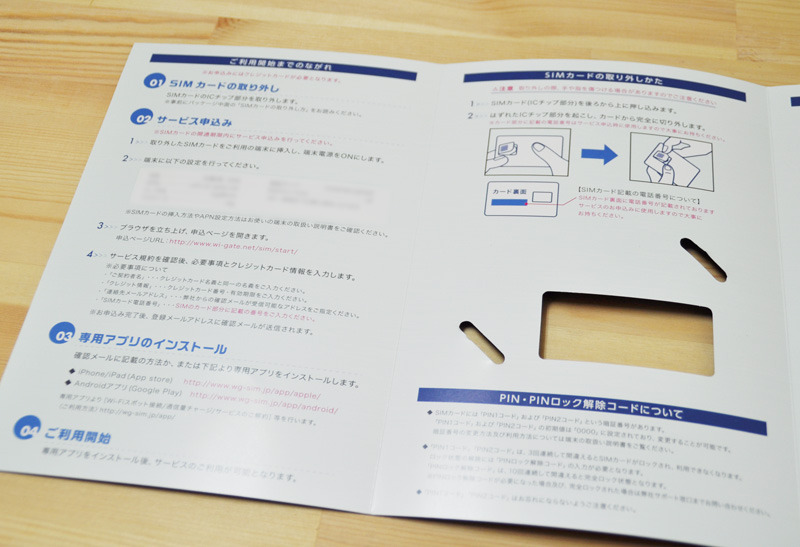 ご利用開始までのながれ
※お申込みにはクレジットカードが必要となります。
01 SIMカードの取り外し
SIMカードのICチップ部分を取り外します。
※事前にパッケージ中面の「SIMカードの取り外し方」をお読みください。
02 サービス申込み
※SIMカードの開通期限内にサービス申込みを行ってください。
1 取り外したSIMカードをご利用の端末に挿入し、端末電源をONにします。
2 端末に以下の設定を行ってください。
※SIMカードの挿入方法やAPN設定方法はお使いの端末の取扱い説明書をご確認ください。
3 ブラウザを立ち上げ、申込ページを開きます。
申込ページURL:http://www.wi-gate.net/sim/start/
4 サービス規約を確認後、必要事項とクレジットカード情報を入力します。
※必要事項について
・「ご契約者名」・・・クレジットカード名義と同一の名義をご入力ください。
・「クレジット情報」・・・クレジットカード番号・有効期限をご入力ください。
・「連絡先メールアドレス」・・・弊社からの確認メールが受信可能なアドレスをご指定ください。
・「SIMカード電話番号」・・・SIMのカード部分に記載の番号をご入力ください。
※お申込み完了後、登録メールアドレスに確認メールが送信されます。
03 専用アプリのインストール
確認メールに記載の方法か、または下記より専用アプリをインストールします。
◆ iPhone/iPad(App store) http://www.wg-sim.jp/app/apple/
◆ Androidアプリ(Google Play) http://www.wg-sim.jp/app/android/
専用アプリより「Wi-Fiスポット接続/通信量チャージ/サービスのご解約」等を行います。
(ご利用方法) http://wg-sim.jp/app/
04 ご利用開始
専用アプリをインストール後、サービスのご利用が可能となります。
SIMカードの取り外しかた
1 SIMカード(ICチップ部分)を後ろから上に押し込みます。
2 はずれたICチップ部分を起こし、カードから完全に切り外します。
※カード部分に記載の電話番号はサービス申込時に使用しますので大事にお持ちください。
カード裏面
【SIMカード記載の電話番号について】
SIMカード裏面に電話番号が記載されております
サービスのお申込みに使用しますので大事に
お持ちください。
PIN・PINロック解除コードについて
◆ SIMカードには「PIN1コード」および「PIN2コード」という暗証番号があります。
「PIN1コード」および「PIN2コード」の初期値は「0000」に設定されており、変更することが可能です。
暗証番号の変更方法及び利用方法については端末の取扱い説明書をご覧ください。